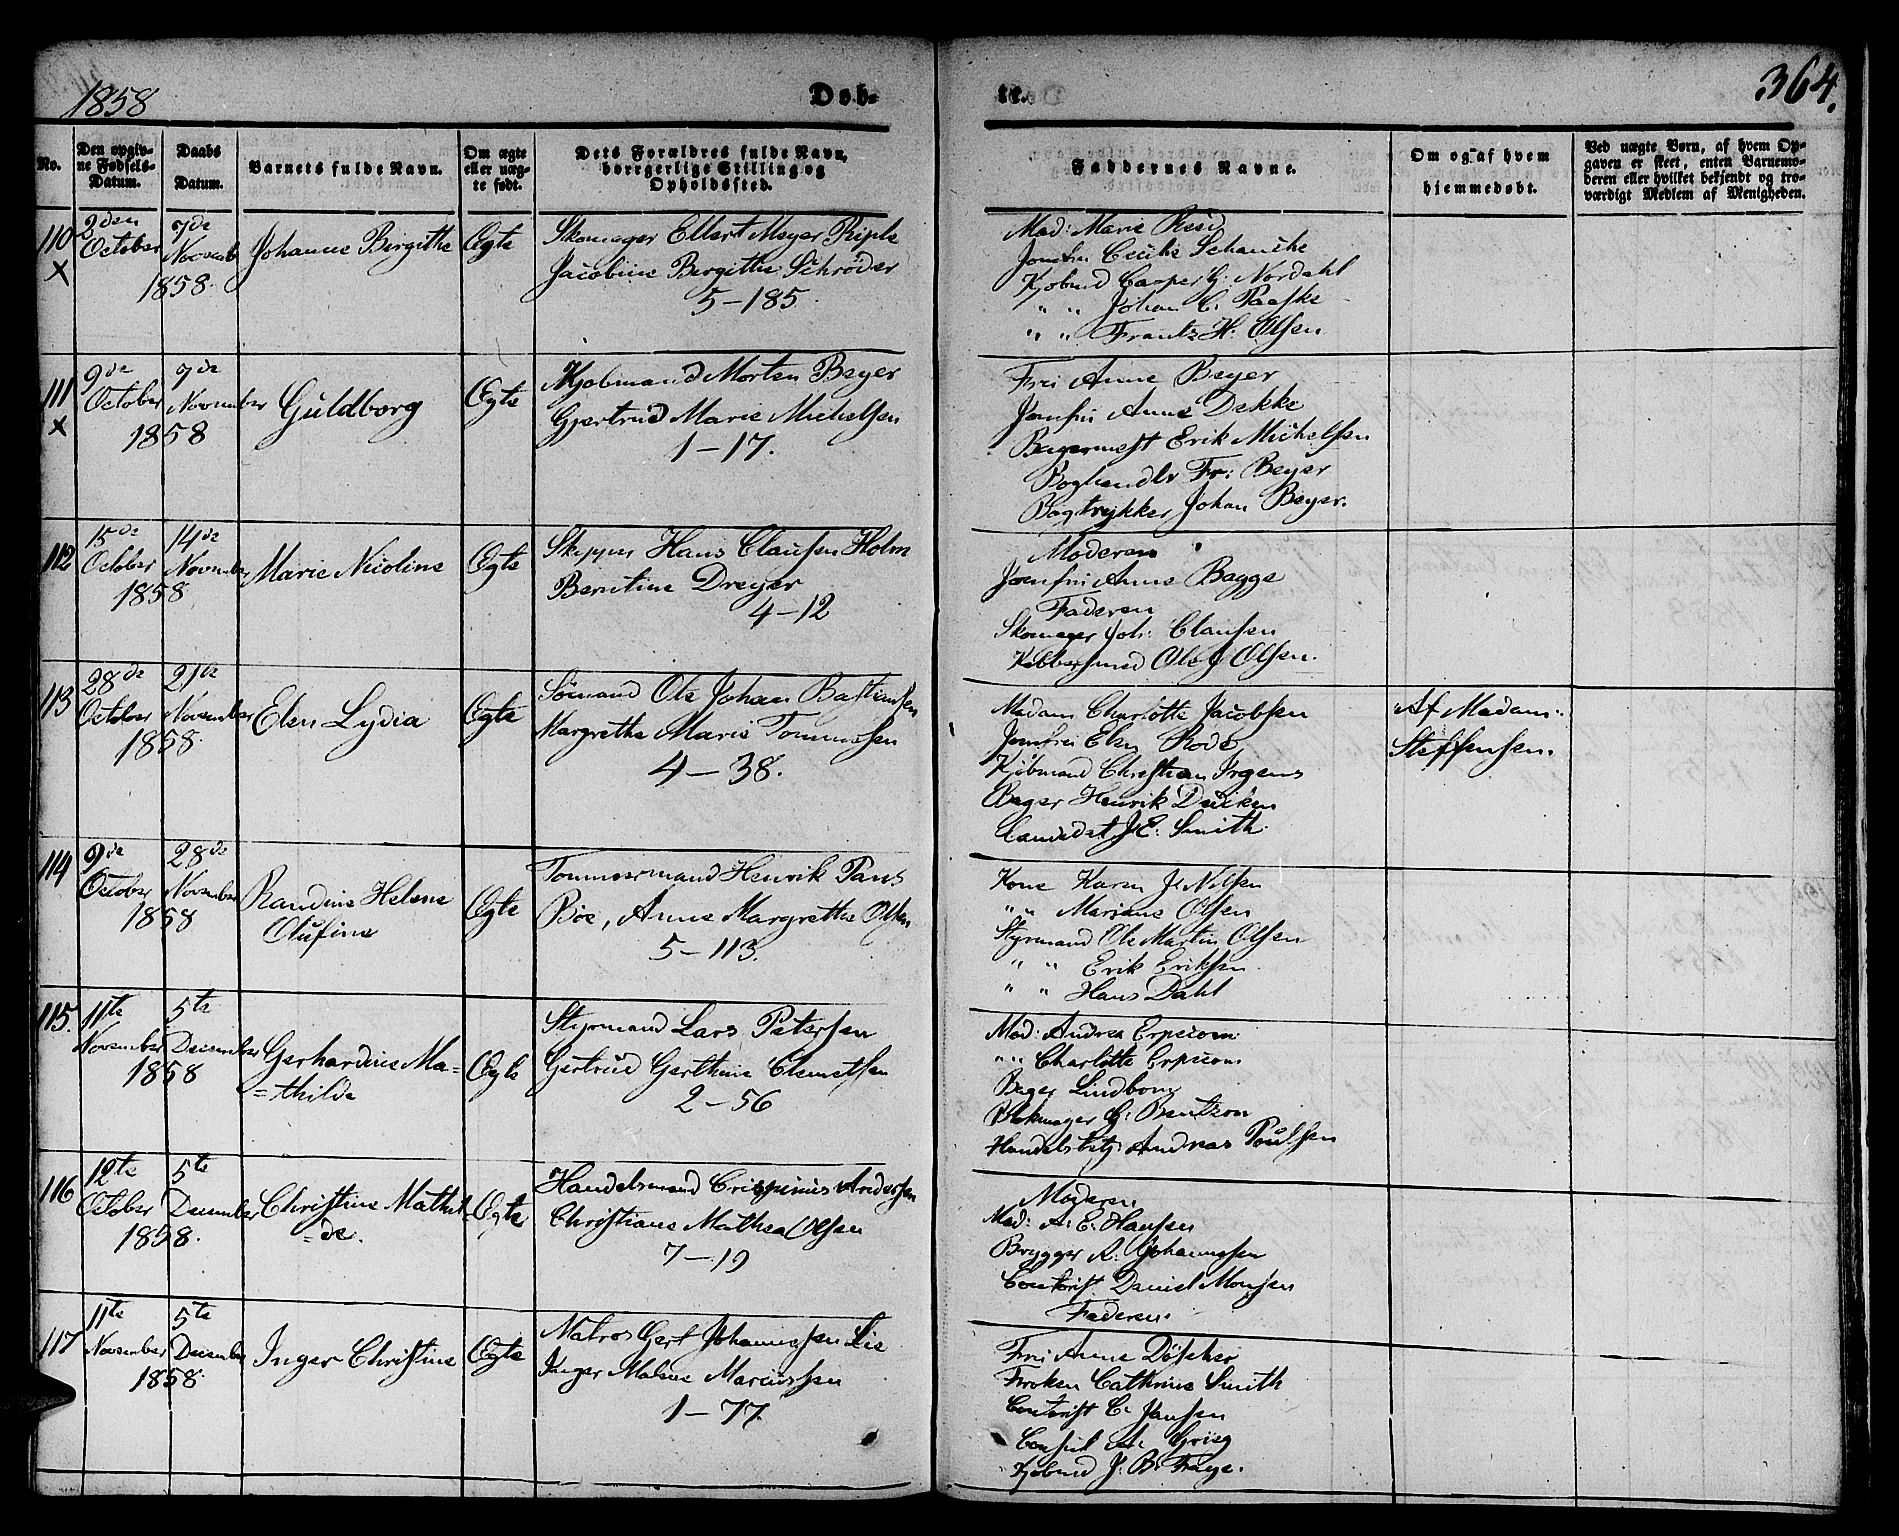 1858
Døb-
te.
364.
No.
Den opgiv-
ne Fødsels-
Datum.
Daabs
Datum.
Barnets fulde Navn.
Om ægte
eller uæg-
te født.
Dets Forældres fulde Navn,
borgerlige Stilling og
Opholdssted.
Faddernes Navne.
Om og af hvem
hjemmedøbt.
Ved uægte Børn, af hvem Op-
gaven er skeet, enten Barnemo-
deren eller hvilket bekjendt og tro-
værdigt Medlem af Menigheden.
110
X
2den
October
7de
Novemb
1858.
Johanne Birgithe
Ægte
Skomager Ellert Meyer Riple
Jacobine Birgithe Schrøder
5-185.
Mad: Marie
Jomfru Cecilie Schanche
Kjøbmd Casper G: Nordahl
" " Johan C. Paaske
" " Frantz H: Olsen
111
X
9de
October
7de
November
1858
Guldborg
Ægte
Kjøbmand Morten Beyer
Gjertrud Marie Michelsen
1-17.
Fru Anne Beyer
Jomfru Anne Dekke
Bagermest Erik Michelsen
Boghandlr Fr: Beyer
Bogtrykker Johan Beyer.
112
15de
October
14de
November
1858
Marie Nicoline
Ægte
Skipper Hans Clausen Holm
Berntine Dreyer
4-12
Moderen
Jomfru Anne Bagge
Faderen
Skomager Joh: Clausen
Kobbersmed Ole J Olsen.
113
28de
October
21de
November
1858.
Elen Lydia
Ægte
Sømand Ole Johan Bastiansen
Margrethe Marie Tommesen
4-38.
Madam Charlotte Jacobsen
Jomfru Elen Rode
Kjøbmand Christian Irgens
Bager Henrik Ducken
Candidat J E: Smith.
Af Madam:
Steffensen.
114
9de
October
28de
November
1858
Randine Helene
Olufine
Ægte
Tømmermand Henrik Pans
Böe, Anne Margrethe Olsen
5-113.
Kone Karen J: Nilsen
" " Mariane Olsen
Styrmand Ole Martin Olsen
" " Erik Eriksen
" " Hans Dahl
115.
11te
November
5te
December
1858
Gerhardine Ma-
=thilde
Ægte
Styrmand Lars Petersen
Gertrud Gerthine Clemetsen
2-56
Mad: Andrea Erpecom
" " Charlotte Erpecom
Bager Lindbom
Blokmager G: Bentzon
Handelsbetj: Andreas Poulsen
116
12te
October
5te
December
1858.
Christine Mathil-
=de.
Ægte
Handelsmand Crispinus Andersen
Christiane Mathea Olsen
7-19
Moderen
Mad: A: E: Hansen
Brygger A: Johannesen
Contorist Daniel Monsen
Faderen.
117
11te
November
5te
December
1858.
Inger Christine
Ægte
Matros Gert Johannesen Lie
Inger Malene Marcussen
1-77.
Fru Anne Döscher
Frøken Cathrine Smith
Contorist C. Jansen
Consul A: Grieg
Kjøbmd J. B: Faye.